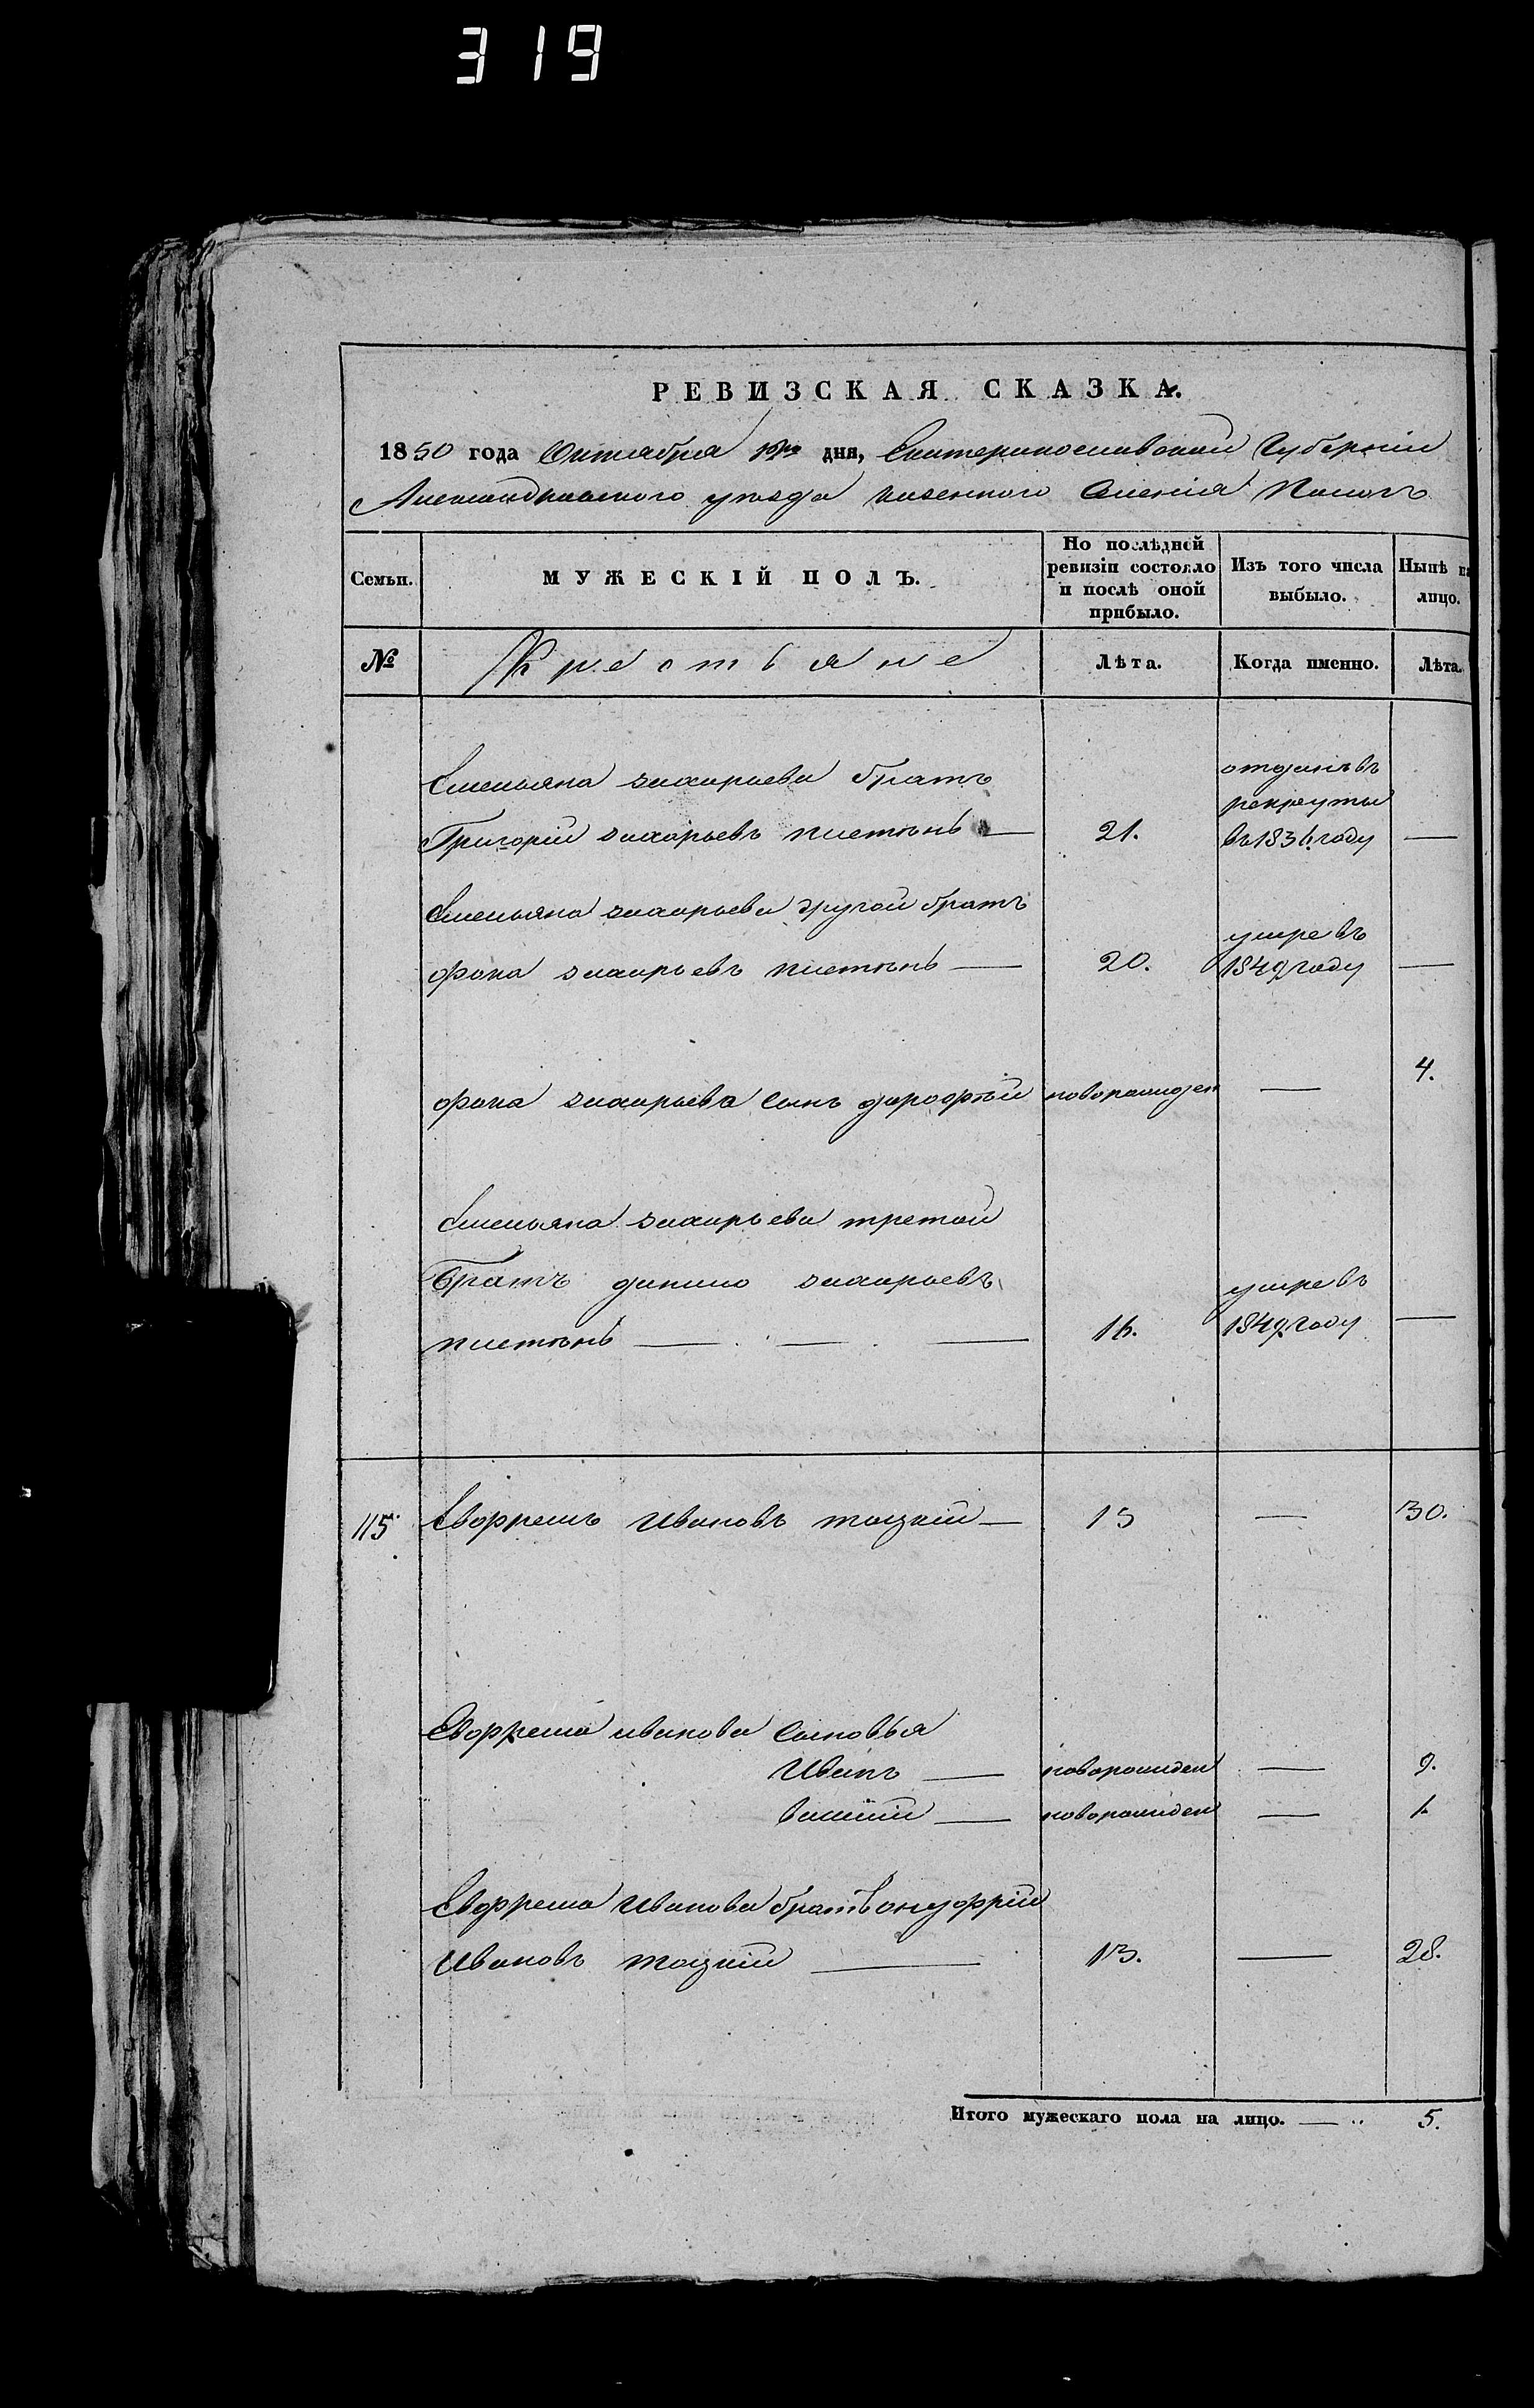 319
РЕВИЗСКАЯ СКАЗКА.
1850 года Октября дня, Екатеринославской Губернии
Александровского уезда казенного Селения Пологъ
Семьи. МУЖЕСКІЙ ПОЛЪ. По послѣдней ревизіи состояло и послѣ оной прибыло. Изъ того числа выбыло. Нынѣ на лицо.
№ Крестьяне Лѣта. Когда именно. Лѣта.
Емельяна захарьева братъ отданъ въ
рекруты
Григорій захарьевъ 21. въ 1836 году —
Емельяна захарьева другой братъ
умре въ
фока захарьевъ — 20. 1849 году —
фока захарьева сынъ дорофѣй новорожден — 4.
Емельяна захарьева третой
братъ данило захарьевъ умре въ
— — — 16. 1849 году —
115 Евфремъ Ивановъ тоцкій — 15 — 30.
Евфрема иванова сыновья
Иванъ — новорожден — 9.
василій — новорожден — 1
Евфрема Иванова братъ онуфрій
Ивановъ тоцкій — 13. — 28.
Итого мужескаго пола на лицо. — 5.